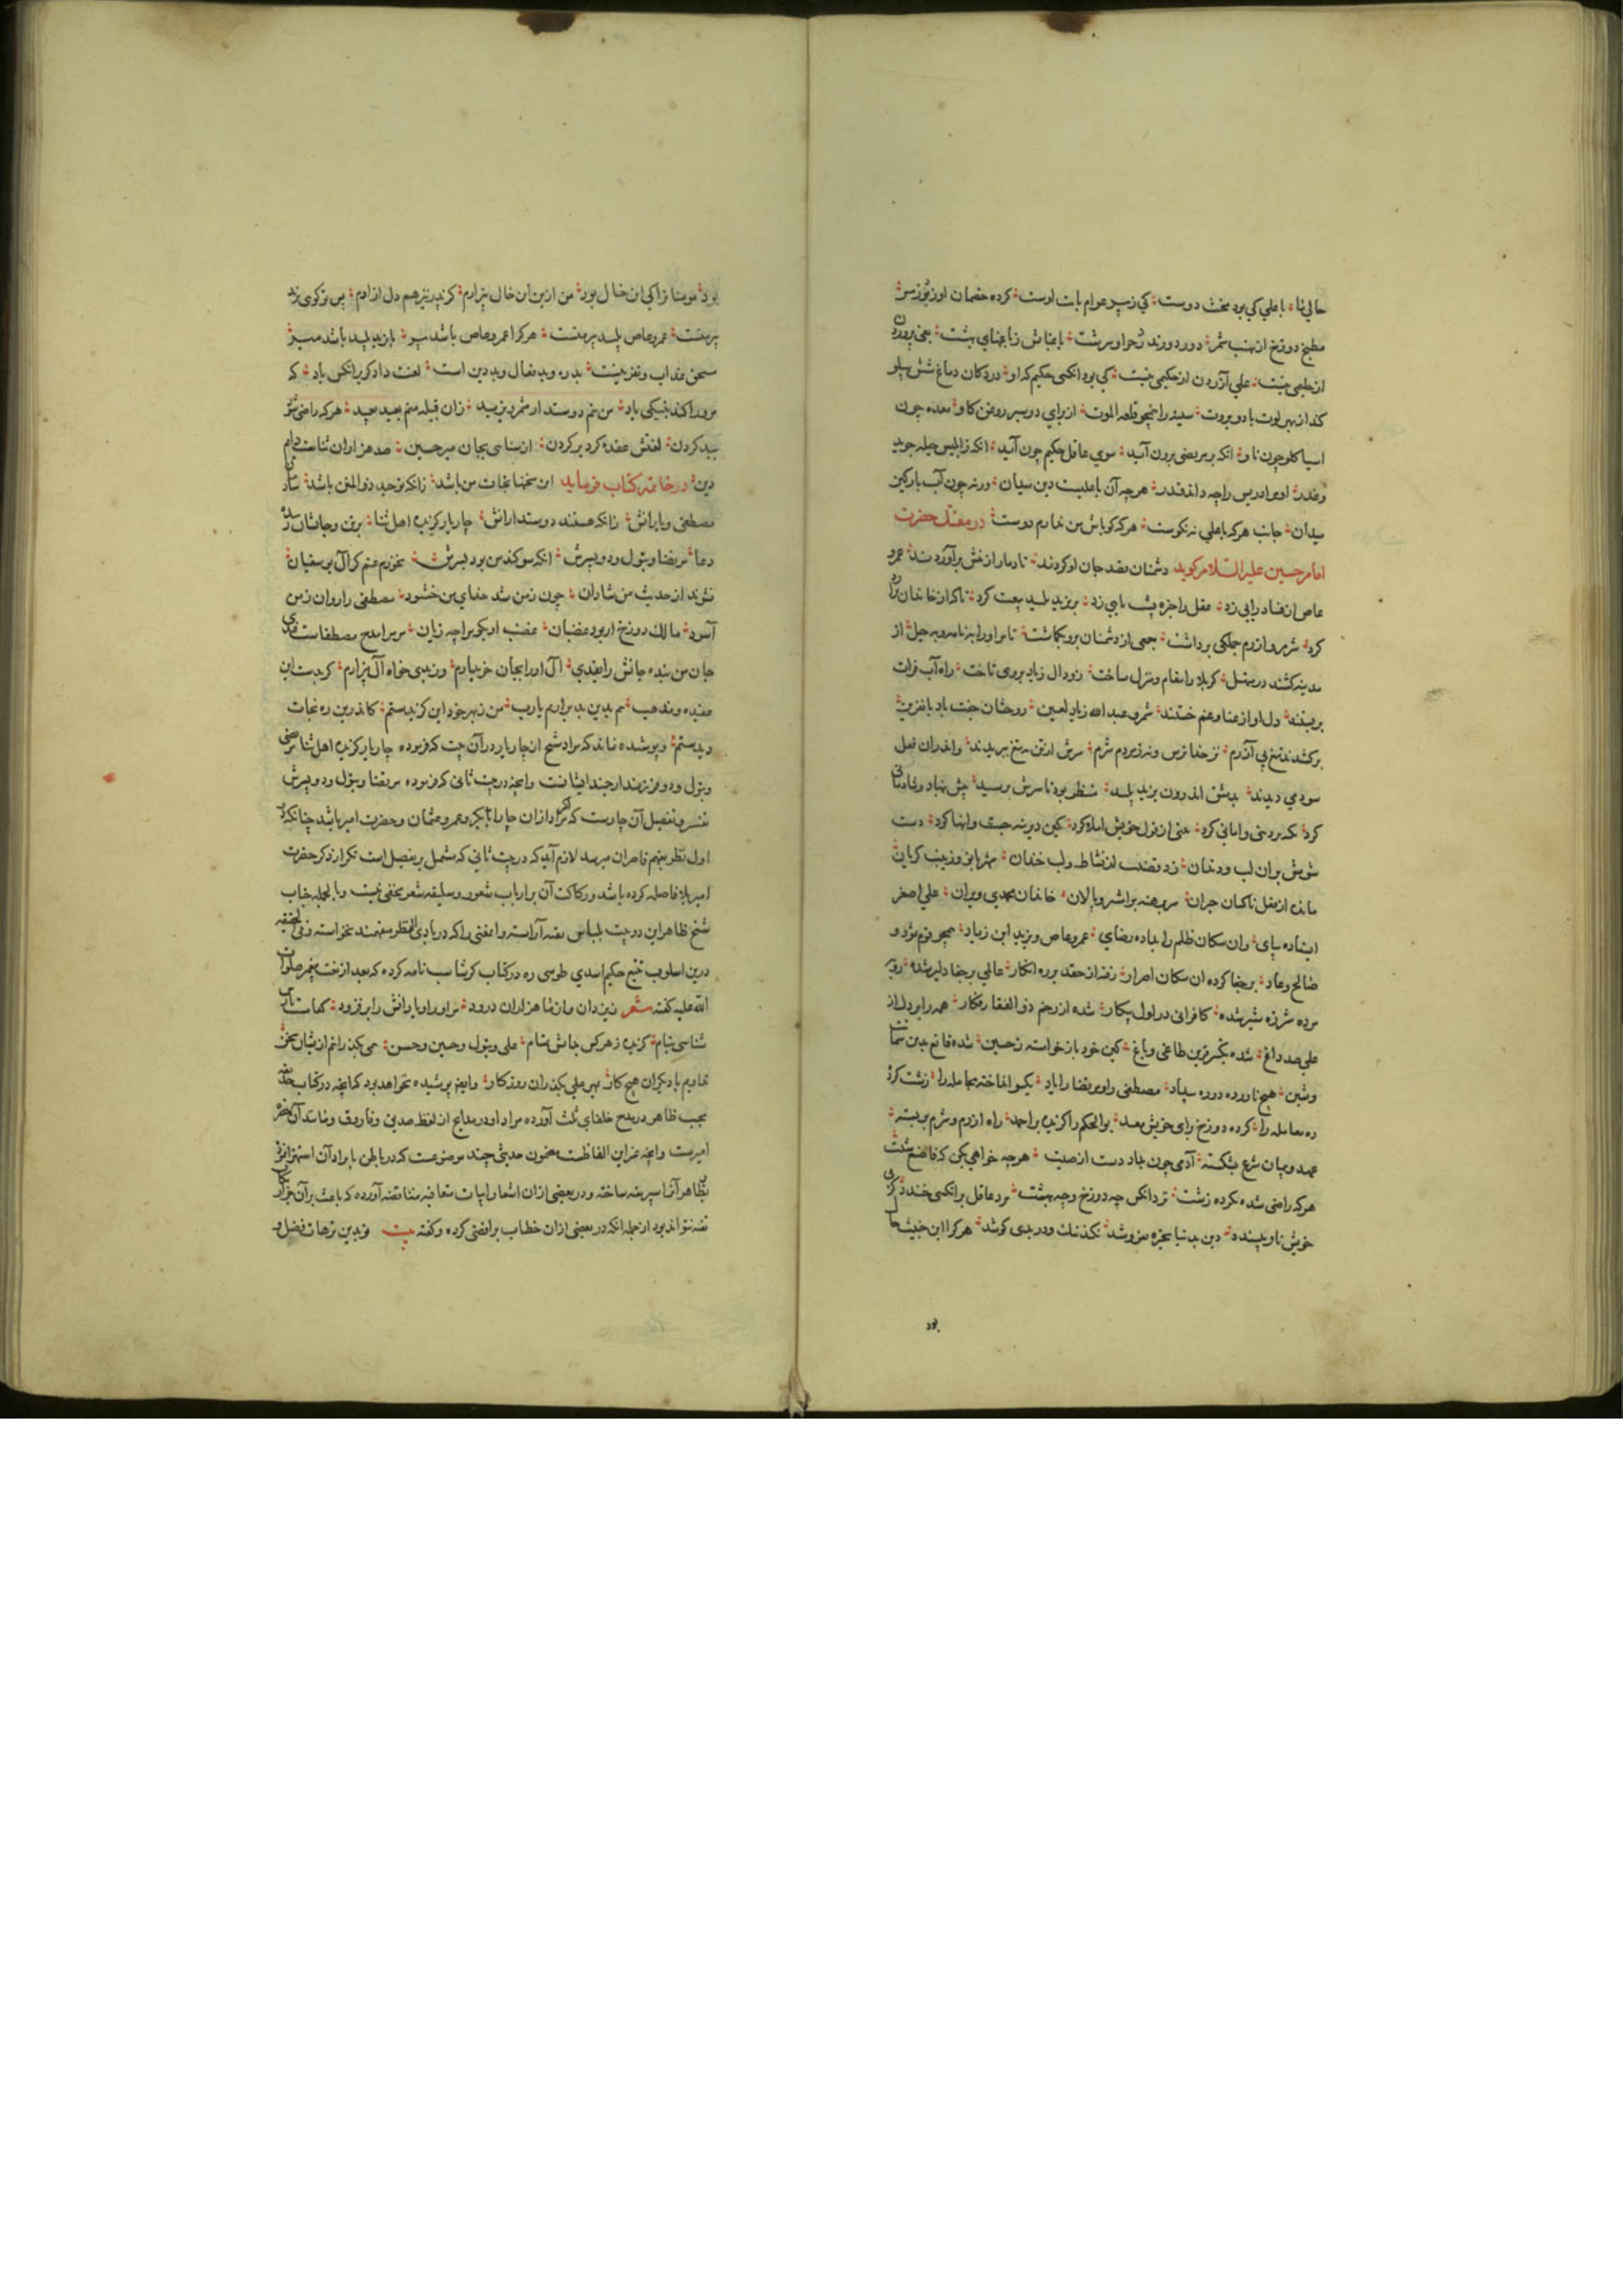 حالی‌ نا با علی کی بود مخنث دوست کی زسر عوام بابت اوست کرده خصمان او
مطبخ دوزخ از هیمه دور دورند از حوا و سرشت باغبانش ز باغهای بهشت
از حلیمی نیست علی آزردن از حکیمی نیست کی بود انکس حکیم که او در دکان دماغ شش پهلو
کند از بهر لوت باد و بروت سینه را همچو قلعه الموت از برای دو سیر روغن کاو معده چون
اسیا کلو چون ناو انکه بر مرتضی برون آید سوی عاقل حکیم چون آید انکه ز ابلیس حیله جوید
و غدر او مر ادریس را چه داند قدر هر چه آن با علیست دین میدان ورنه چون آب بارگین
میدان جانب هر که با علی نه نکوست هر که کو باش من ندارم دوست در مقتل حضرت
امام حسین علیه السلام کوید دشمنان قصد جان او کردند تا دمار از تنش برآوردند عمرو
عاص از فساد رایی زد عقل را خیره پشت پایی زد بر یزید پلید بیعت کرد تا که از خاندان
کرد شرم و ازرم جملکی برداشت جمعی از دشمنان برو بکماشت تا مر او را بنامه و به حیل از
مدینه کشند در منهل کربلا را مقام و منزل ساخت زود ال زیاد بر وی تاخت راه آب فرات
بربستند دل او از عنا و غم خستند شمر و عبد الله زیاد لعین روحشان جفت باد با نفرین
برکشیدند تیغ بی آزرم نز خدا ترس و نه ز مردم شرم سرش از تن به تیغ ببریدند واندران فعل
سودی دیدند بدمشق اندرون یزید پلید منتظر بود تا سرش برسید پیش بنهاد و شادمانی
کرد تکیه بر دنیی و امانی کرد بیتی از قول خویش املا کرد کین دیرینه جست و انها کرد دست
شومش بر ان لب و دندان زد قضیب از نشاط و لب خندان شهربانو و زینب کریان
مانده از فعل ناکسان حیران سر برهنه بر اشتر و پالان خاندان محمدی ویران علی اصغر
ایستاده بپای وان سکان ظلم را بداده رضای عمرو عاص و یزید ابن زیاد همچو قوم ثمود و
صالح و عاد بر جفا کرده ان سکان اصرار رفته از حقد بر ره انکار عالمی بر جفا دلیر شده
مرده شرزه شیر شده کافرانی در اول پیکار شده از زخم ذوالفقار فکار همه را بر دل از
علی صد داغ شده یکسر قرین طاغی و باغ کین خود باز خواسته ز حسین شده قانع بدین شماتت
و شین هیچ ناورده در ره بیداد مصطفی را و مرتضا را یاد یکسو انداخته مجامله را زشت کرده
ره معامله را کرده دوزخ برای خویش معد بو الحکم را کزیده بر احمد راه ازرم و شرم بربسته
عهد و پیمان شرع بشکسته آدمی چون بداد دست از صیت هر چه خواهی بکن که فاصنع شئت
هر که راضی شده بکرده زشت نزد انکس چه دوزخ و چه بهشت مرد عاقل بر انکسی خندد کز پی
خویش نار بپسندد دین بدنیا بخیره بفروشد نکند نیک و در بدی کوشد هر کرا این خبیث خال
بود
بود مومنا نزا کی ان خال بود من ازین ابن خال بیزارم کز پدر نیز هم دل ازارم پس تو کوئی یزید
پیر منست عمرو عاص پلید پیر منست هر کرا عمرو عاص باشد پیر یا یزید پلید باشد میر
مستحق عذاب و نفرینست بد ره و بد فعال و بد دین است لعنت دادکر برانکس باد که
مر و را کند بنیکی یاد من نیم دوستدار شمر و یزید زان قبیله منم بعید بعید هر که راضی شود
ببد کردن لعنتش عقده کرد بر کردن از سنایی بجان میر حسین صد هزاران ثناست دایم
دین در خاتمه کتاب فرماید این سخنها نجات من باشد زانکه توحید ذوالمنن باشد
مصطفی و یارانش زانکه هستند دوستدارانش چار یار کزیده اهل ثنا بر تن و جانشان ز بنده
دعا مرتضا و بتول و دو پسرش انکه سوکند من بود بسرش نخورم غم کر آل بوسفیان
نشوند از حدیث من شادان چون ز من شد خدای من خشنود مصطفی را روان ز من
آسود مالک دوزخ ار بود غضبان غضب او بکو مرا چه زیان مر مرا مدح مصطفاست غذی
جان من بنده جانش را بفدی آل او را بجان خریدارم وز بدی خواه آل بیزارم کر بدست این
عقیده و مذهب هم بدین بد بدارم یارب من ز بهر خود این کزیدستم کاندرین ره نجات
دیدستم و پوشیده نماند که مراد شیخ از چار یار در آن بیت که فرموده چار یار کزیده اهل ثنا مرتضی
و بتول و دو فرزند ارجمند ایشانست و آنچه در بیت ثانی که فرموده مرتضا و بتول و دو پسرش
تفسیر و تفصیل آن چارست که اکر مراد از ان چار ابابکر و عمر و عثمان و حضرت امیر باشد چنانکه در
اول نظر بفهم قاصران میرسد لازم آید که در بیت ثانی که مشتمل بر تفصیل است تکرار ذکر حضرت
امیر بلا فاصله کرده باشد و رکاکت آن بر ارباب شعور و سلیقه شعر مخفی نیست و بالجمله جناب
شیخ ظاهر این دو بیت بلباس تقیه آراسته و معنی را که در بادی النظر مفهمند نخواسته و فی الحقیقه
درین اسلوب تتبع حکیم اسدی طوسی ره در کتاب کرشاسب نامه کرده که بعد از نعت پیغمبر صلوات
الله علیه کفته شعر ز یزدان و از ما هزاران درود مر او را و یارانش را بر فزود
شناسی بنام کزیده ز هر کس جانش تمام علی و بتول و حسین و حسن
نداریم با دیکران هیچ کار بمهر علی بکذران روزکار و اینهم پوشیده نخواهد بود که انچه در کتاب حدیقه
بحسب ظاهر در مدح خلفای ثلث آورده مراد او در مدایح از لفظ صدیق و فاروق و مانند آن حضرت
امیرست و انچه غیر این الفاظست مضمون حدیثی چند موضوعست که در باطن بایراد آن استهزا نموده
بظاهر آنرا سپر تقیه ساخته و در بعضی از ان اشعار ابیات متعاقبه متناقضه آورده که باعث بر آن جز
تقیه نتواند بود از جمله انکه در بعضی از ان خطاب برافضی کرده و کفته بیت تو بدین ترهات فضل و